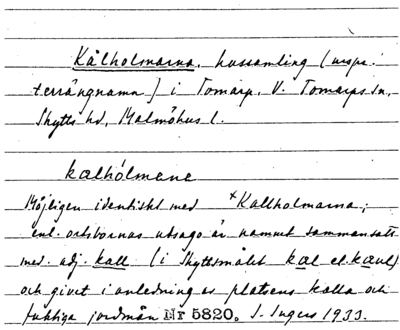 Kålholmarna, hussamling (urspr.
terrängnamn) i Tomarp, V. Tomarps sn,
Skytts hd, Malmöhus l.
kalhólmana
Möjligen identiskt med *Kallholmarna;
enl. ortsbornas utsago är namnet sammansatt
med adj. kall (i Skyttsmålet kal el. kaul)
och givet i anledning av platsens kalla och
fuktiga jordmån Nr 5820. I. Ingers 1933.